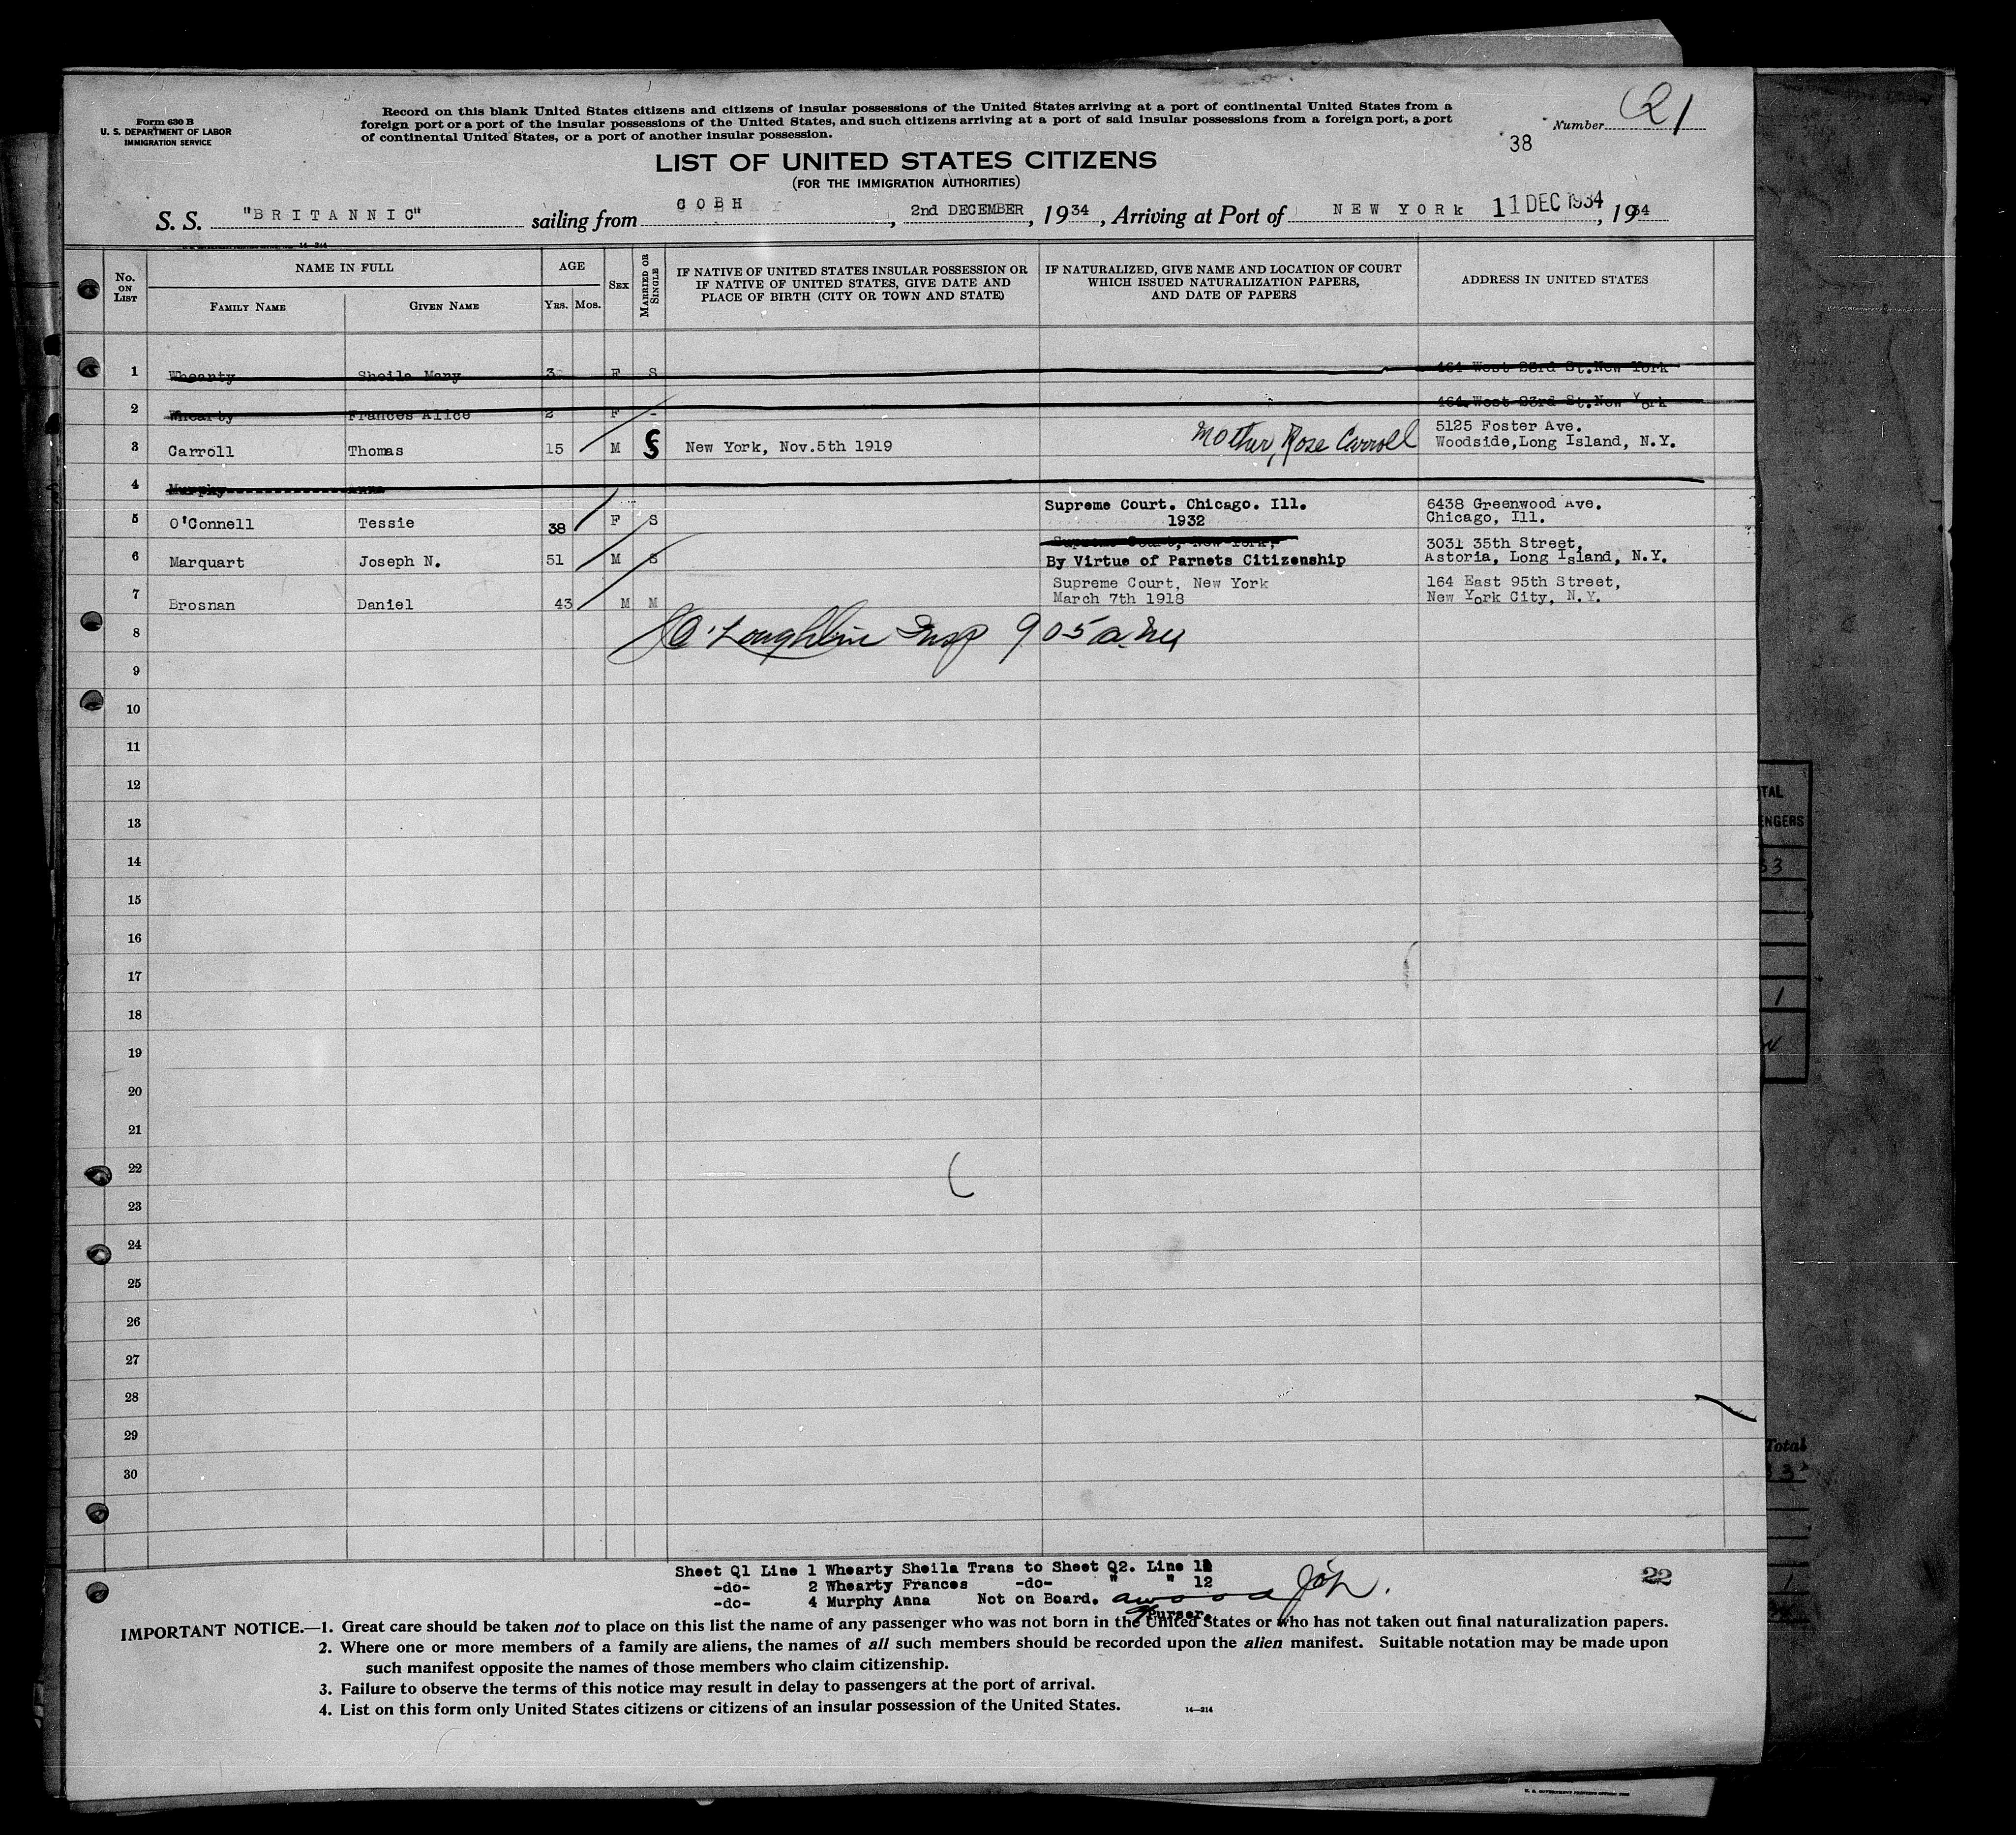 Form 630 B
U. S. DEPARTMENT OF LABOR
IMMIGRATION SERVICE
Record on this blank United States citizens and citizens of insular possessions of the United States arriving at a port of continental United States from a
foreign port or a port of the insular possessions of the United States, and such citizens arriving at a port of said insular possessions from a foreign port, a port
of continental United States, or a port of another insular possession.
Number Q1
38
LIST OF UNITED STATES CITIZENS
(FOR THE IMMIGRATION AUTHORITIES)
S. S. "BRITANNIC" sailing from COBH, 2nd DECEMBER, 1934, Arriving at Port of NEW YORK 11 DEC 1934, 1934
14-214
No. ON LIST NAME IN FULL AGE SEX MARRIED OR SINGLE IF NATIVE OF UNITED STATES INSULAR POSSESSION OR IF NATIVE OF UNITED STATES, GIVE DATE AND PLACE OF BIRTH (CITY OR TOWN AND STATE) IF NATURALIZED, GIVE NAME AND LOCATION OF COURT WHICH ISSUED NATURALIZATION PAPERS, AND DATE OF PAPERS ADDRESS IN UNITED STATES
FAMILY NAME GIVEN NAME YRS. MOS.
1 Whearty Sheila Mary 3 F S 464 West 23rd St.New York
2 Whearty Frances Alice 2 F - 464 West 23rd St.New York
5125 Foster Ave.
3 Carroll Thomas 15 M S New York, Nov.5th 1919 Mother, Rose Carroll Woodside,Long Island, N.Y.
4 Murphy Anna
Supreme Court. Chicago. Ill. 6438 Greenwood Ave.
5 O'Connell Tessie 38 F S 1932 Chicago, Ill.
Supreme Court, New York, 3031 35th Street,
6 Marquart Joseph N. 51 M S By Virtue of Parnets Citizenship Astoria, Long Island, N.Y.
Supreme Court, New York 164 East 95th Street,
7 Brosnan Daniel 43 M M March 7th 1918 New York City, N.Y.
8 O'Loughlin Insp 905 a.m
9
10
11
12
13
14
15
16
17
18
19
20
21
22
23
24
25
26
27
28
29
30
Sheet Q1 Line 1 Whearty Sheila Trans to Sheet Q2. Line 11
-do- 2 Whearty Frances -do- " " 12
-do- 4 Murphy Anna Not on Board.
Purser.
22
IMPORTANT NOTICE.—1. Great care should be taken not to place on this list the name of any passenger who was not born in the United States or who has not taken out final naturalization papers.
2. Where one or more members of a family are aliens, the names of all such members should be recorded upon the alien manifest. Suitable notation may be made upon
such manifest opposite the names of those members who claim citizenship.
3. Failure to observe the terms of this notice may result in delay to passengers at the port of arrival.
4. List on this form only United States citizens or citizens of an insular possession of the United States.
14—214
Total